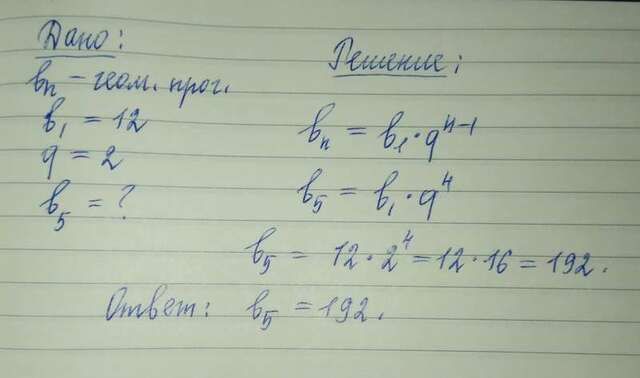 Дано:
bn – геом. прог.
b1 = 12
q = 2
b5 = ?
Решение:
bn = b1 · q^n-1
b5 = b1 · q^4
b5 = 12 · 2^4 = 12 · 16 = 192.
Ответ: b5 = 192.